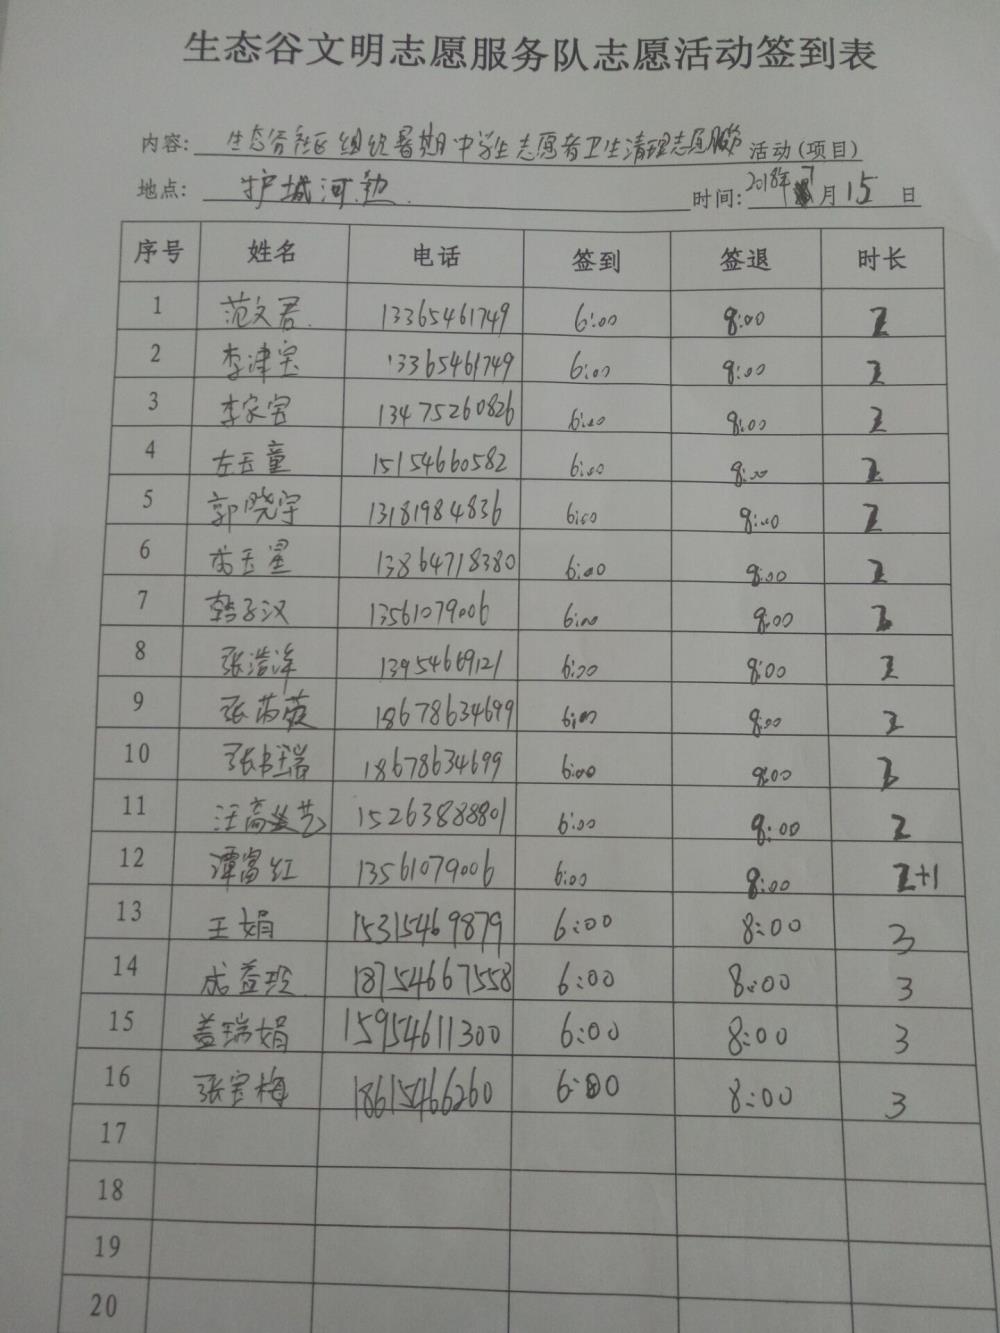 生态谷文明志愿服务队志愿活动签到表
内容: 生态谷社区组织暑期中学生志愿者卫生清理志愿服务 活动(项目)
地点: 护城河边 时间: 2018年7月15日
序号 姓名 电话 签到 签退 时长
1 范文君 13365461749 6:00 8:00 2
2 李津宝 13365461749 6:00 8:00 2
3 李家宝 13475260826 6:00 8:00 2
4 左玉童 15154660582 6:00 8:00 2
5 郭晓宇 13181984836 6:00 8:00 2
6 玉星 13864718380 6:00 8:00 2
7 韩子汉 13561079006 6:00 8:00 2
8 张浩洋 13954669121 6:00 8:00 2
9 张芮菠 18678634699 6:00 8:00 2
10 张钰瑞 18678634699 6:00 8:00 2
11 汪高艺 15263888801 6:00 8:00 2
12 谭富红 13561079006 6:00 8:00 2+1
13 王娟 15315469879 6:00 8:00 3
14 成益玲 18754667558 6:00 8:00 3
15 盖瑞娟 15954611300 6:00 8:00 3
16 张宝梅 18615466260 6:00 8:00 3
17
18
19
20